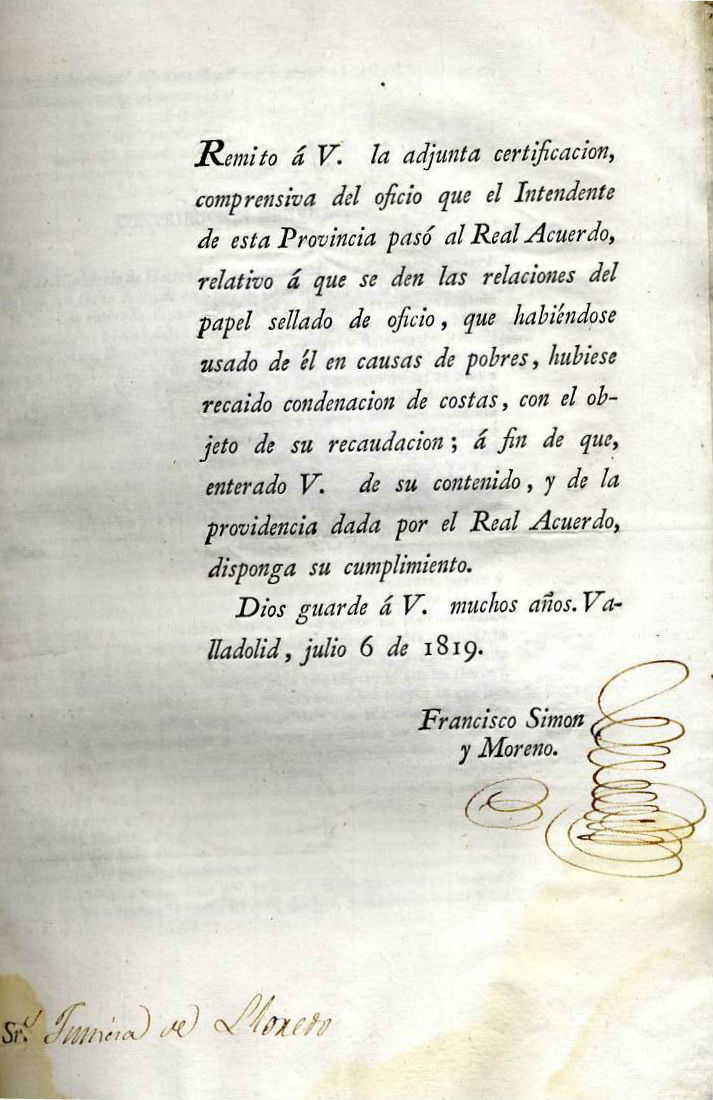 Remito á V. la adjunta certificacion,
comprensiva del oficio que el Intendente
de esta Provincia pasó al Real Acuerdo,
relativo á que se den las relaciones del
papel sellado de oficio, que habiéndose
usado de él en causas de pobres, hubiese
recaido condenacion de costas, con el ob-
jeto de su recaudacion; á fin de que,
enterado V. de su contenido, y de la
providencia dada por el Real Acuerdo,
disponga su cumplimiento.
Dios guarde á V. muchos años. Va-
lladolid, julio 6 de 1819.
Francisco Simon
y Moreno.
Sr. de